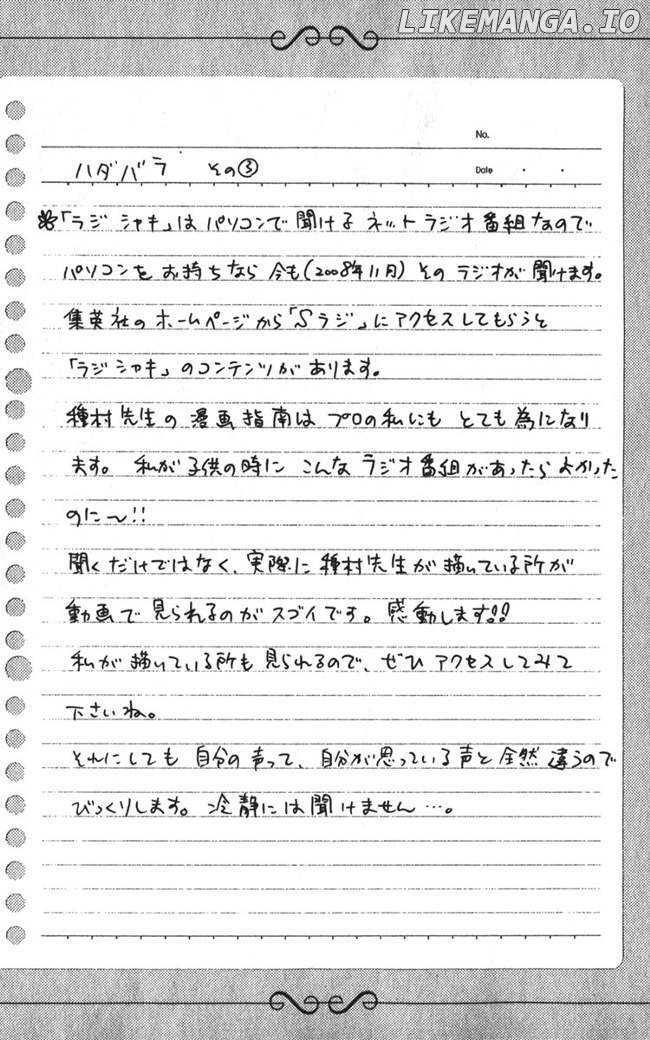 LIKEMANGA.IO
No.
ハダバラ その③
Date ・ ・
「ラジシャキ」はパソコンで聞けるネットラジオ番組なので
パソコンをお持ちなら今も(2008年11月)そのラジオが聞けます。
集英社のホームページから「Sラジ」にアクセスしてもらうと
「ラジシャキ」のコンテンツがあります。
種村先生の漫画指南はプロの私にもとても為になり
ます。 私が子供の時にこんなラジオ番組があったらよかった
のに〜!!
聞くだけではなく、実際に種村先生が描いている所が
動画で見られるのがスゴイです。感動します!!
私が描いている所も見られるので、ぜひアクセスしてみて
下さいね。
それにしても自分の声って、自分が思っている声と全然違うので
びっくりします。冷静には聞けません…。